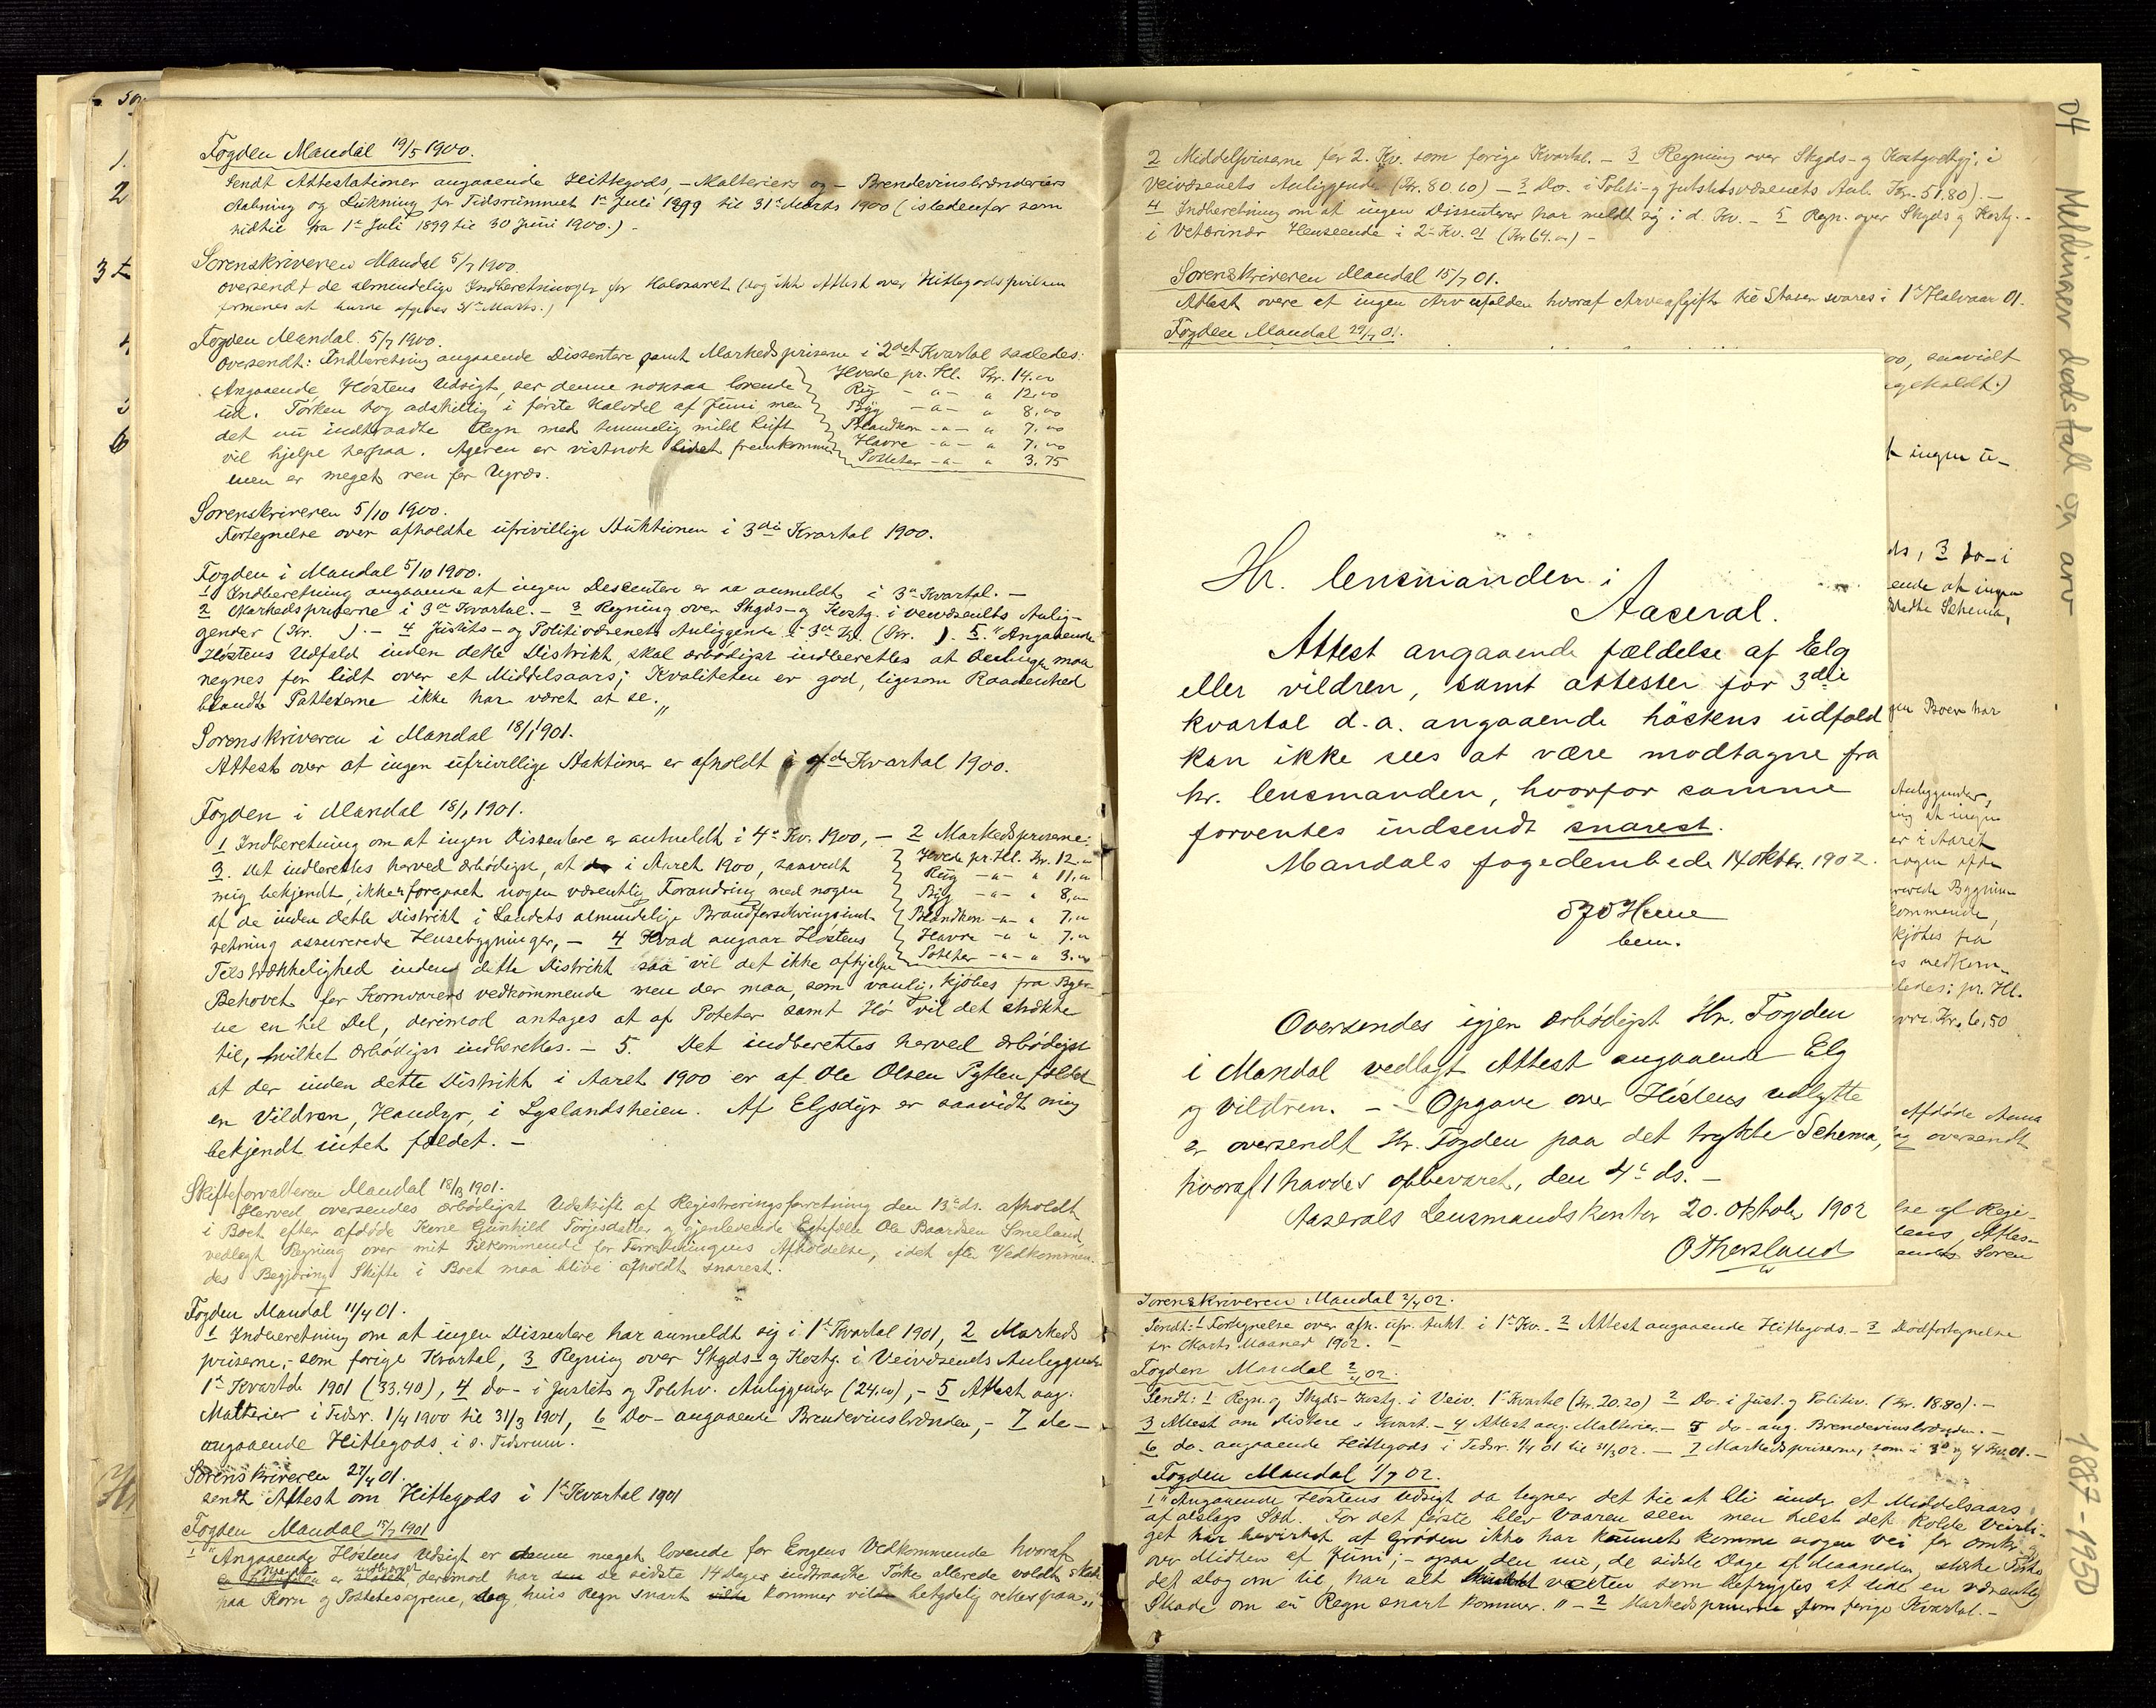 Fogden Mandal 19/5 1900.
Sendt Attestationer angaaende Hittegods, - Malteriers og - Brendevinsbrænderiers
Aabning og Lukning for Tidsrummet 1ste Juli 1899 til 31te Marts 1900 (istedenfor som
hidtil fra 1ste Juli 1899 til 30 Juni 1900.) -
Sorenskriveren Mandal 5/7 1900.
oversendt de almindelige Indberetninger for Halvaaret (dog ikke Attest over Hittegods
formenes at burde afgives 31te Marts.)
Fogden Mandal 5/7 1900.
Oversendt: Indberetning angaaende Dissentere samt Markedspriserne i 2det Kvartal saaledes:
Angaaende Høstens Udsigt, ser denne noksaa lovende
ud. Tørken tog adskillig i første Halvdel af Juni men
det nu indtraadte Regn med temmelig mild Luft
vil hjelpe herpaa. Ageren er vistnok lidet fremkommen
men er meget ren for Ugræs.
Hvede pr. Hl. Kr. 14.00
Rug - " - " 12,00
Byg - " - " 8,00
Blandkorn - " - " 7,00
Havre - " - " 7,00
Poteter - " - " 3,75
Sorenskriveren 5/10 1900.
Fortegnelse over afholdte ufrivillige Auktioner i 3die Kvartal 1900.
Fogden i Mandal 5/10 1900.
1 Indberetning angaaende at ingen Descentere er anmeldt i 3die Kvartal. -
2 Markedspriserne i 3die Kvartal. - 3 Regning over Skyds- og Kostg. i Veivæsenets Anlig-
gender (Kr. ). - 4 Justits- og Politivæsenets Anliggende i 3die Kv. (Kr. ). 5. "Angaaende
Høstens Udfald inden dette Distrikt, skal ærbødigst indberettes at Avlingen maa
regnes for lidt over et Middelsaars; Kvaliteten er god, ligesom Raaddenhed
blandt Potteterne ikke har været at se."
Sorenskriveren i Mandal 18/1 1901.
Attest over at ingen ufrivillige Auktioner er afholdt i 4de Kvartal 1900.
Fogden i Mandal 18/1 1901.
1 Indberetning om at ingen Dissentere er anmeldt i 4de Kv. 1900, - 2 Markedspriserne:
3. Det indberettes herved ærbødigst, at i Aaret 1900, saavidt
mig bekjendt, ikke er foregaaet nogen væsentlig Forandring med nogen
af de inden dette Distrikt i Landets almindelige Brandforsikringsind-
retning assurerede Husebygninger, - 4 Hvad angaar Høstens
Tilstrækkelighed inden dette Distrikt saa vil det ikke afhjelpe
Hvede pr. Hl. Kr. 12.00
Rug - " - " 11,00
Byg - " - " 8,00
Blandkorn - " - " 7,00
Havre - " - " 7,00
Poteter - " - " 3,00
Behovet for Kornvarers vedkommende men der maa, som vanlig, kjøbes fra Byer-
ne en hel Del, derimod antages at af Poteter samt Hø vil det strække
til, hvilket ærbødigst indberettes. - 5. Det indberettes herved ærbødigst
at der inden dette Distrikt i Aaret 1900 er af Ole Olsen Pytten fældet
en Vildren, Handyr, i Lyslandsheien. Af Elgsdyr er saavidt mig
bekjendt intet fældet. -
Skifteforvalteren Mandal 18/3 1901.
Herved oversendes ærbødigst Udskrift af Registreringsforretning den 13de ds. afholdt
i Boet efter afdøde Kone Gunhild Torjesdatter og gjenlevende Egtefælle Ole Baardsen Smeland
vedlagt Regning over mit Tilkommende for Forretningens Afholdelse, idet efter Vedkommen-
des Begjæring Skifte i Boet maa blive afholdt snarest.
Fogden Mandal 11/4 01.
1 Indberetning om at ingen Dissentere har anmeldt sig i 1ste Kvartal 1901, 2 Markeds
priserne, som forige Kvartal, 3 Regning over Skyds- og Kostg. i Veivæsenets Anliggender
1ste Kvartal 1901 (33.40), 4 do - i Justits og Politiv. Anliggender (24,00), - 5 Attest ang.
Malterier i Tidsr. 1/4 1900 til 31/3 1901, 6 Do - angaaende Brendevinsbrænden, - 7 do -
angaaende Hittegods i s. Tidsrum.
Sorenskriveren 27/4 01.
sendt Attest om Hittegods i 1ste Kvartal 1901
Fogden Mandal 15/7 1901
1 "Angaaende Høstens Udsigt er denne meget lovende for Engens Vedkommende hvoraf
er derimod har de sidste 14 dages indtraadte Tørke allerede voldt Skade
paa Korn og Pottetesagrene, dog, hvis Regn snart kommer vil betydelig rettes paa."
2 Middelpriserne for 2. Kv. som forige Kvartal. - 3 Regning over Skyds- og Kostgodtgj. i
Veivæsenets Anliggende (Kr. 80.60) - 3 Do. i Politi- og Justitsvæsenets Anl. Kr. 51.80). -
4 Indberetning om at ingen Dissenterer har meldt sig i d. Kv. - 5 Regn. over Skyds og Kostg. -
i Veterinær Henseende i 2. Kv. 01 (Kr 64.00) -
Sorenskriveren Mandal 15/7 01.
Attest over at ingen Arv er falden hvoraf Arveafgift til Staten svares i 1ste Halvaar 01.
Fogden Mandal 29/7 01.
00, saavidt
t ingen u-
ds, 3 do - i
ende at ingen
trykte Schema,
gen Boer har
Anliggender,
ing at ingen
er i Aaret
kommende,
kjøbes fra
s vedkom-
ledes: pr. Hl.
vre. Kr. 6,50
Afdøde Anna
oversendt
lse af Regi-
Hr. lensmanden i
Aaseral.
Attest angaaende fældelse af Elg
eller vildren, samt attester for 3die
kvartal d.a. angaaende höstens udfald
kan ikke sees at være modtagne fra
hr. lensmanden, hvorfor samme
forventes indsendt snarest.
Mandals fogedembede 14 Oktbr. 1902.
bem.
Oversendes igjen ærbødigst Hr. Fogden
i Mandal vedlagt Attest angaaende Elg
og vildren. - Opgave over Höstens udbytte
er oversendt Hr. Fogden paa det trykte Schema,
hvoraf 1 havdes opbevaret, den 4de ds. -
Aaserals Lensmandskontor 20. Oktober 1902
O Thersland
Sorenskriveren Mandal 2/4 02.
Sendt: 1 Fortegnelse over afh. ufr. Aukt. i 1ste Kv. - 2 Attest angaaende Hittegods. - 3 Dødfortegnelse
for Marts Maaned 1902. -
Fogden Mandal 2/4 02.
Sendt: 1 Regn. og Skyds- Kostg. i Veiv. 1ste Kvartal (Kr. 20.20) 2 Do. i Just. og Politiv. (Kr. 18.80). -
3 Attest om Distere Kvart. - 4 Attest ang. Malterier. - 5 do - ang. Brendevinsbrænden. -
6 do. angaaende Hittegods i Tidsr. 1/4 01 til 31/3 02. - 7 Markedspriserne, som i 3die og 4 Kv. 01. -
Fogden Mandal 1/7 02.
1 "Angaaende Høstens Udsigt da tegner det til at bli under et Middelsaars
af alslags Sæd. For det første blev Vaaren seen men helst det kolde Veirli-
get har bevirket at Grøden ikke har kunnet komme nogen vei før omkr. og
over Midten af Juni; - ogsaa den nu, de sidste Dage af Maaneden, stærke Tørke
det slog om til, har alt som befrygtes at lide en væsentlig
Skade om ei Regn snart kommer." - 2 Markedspriserne som forige Kvartal. -
04 Meldinger dødsfall og arv
1887-1950
1.
2
3
6